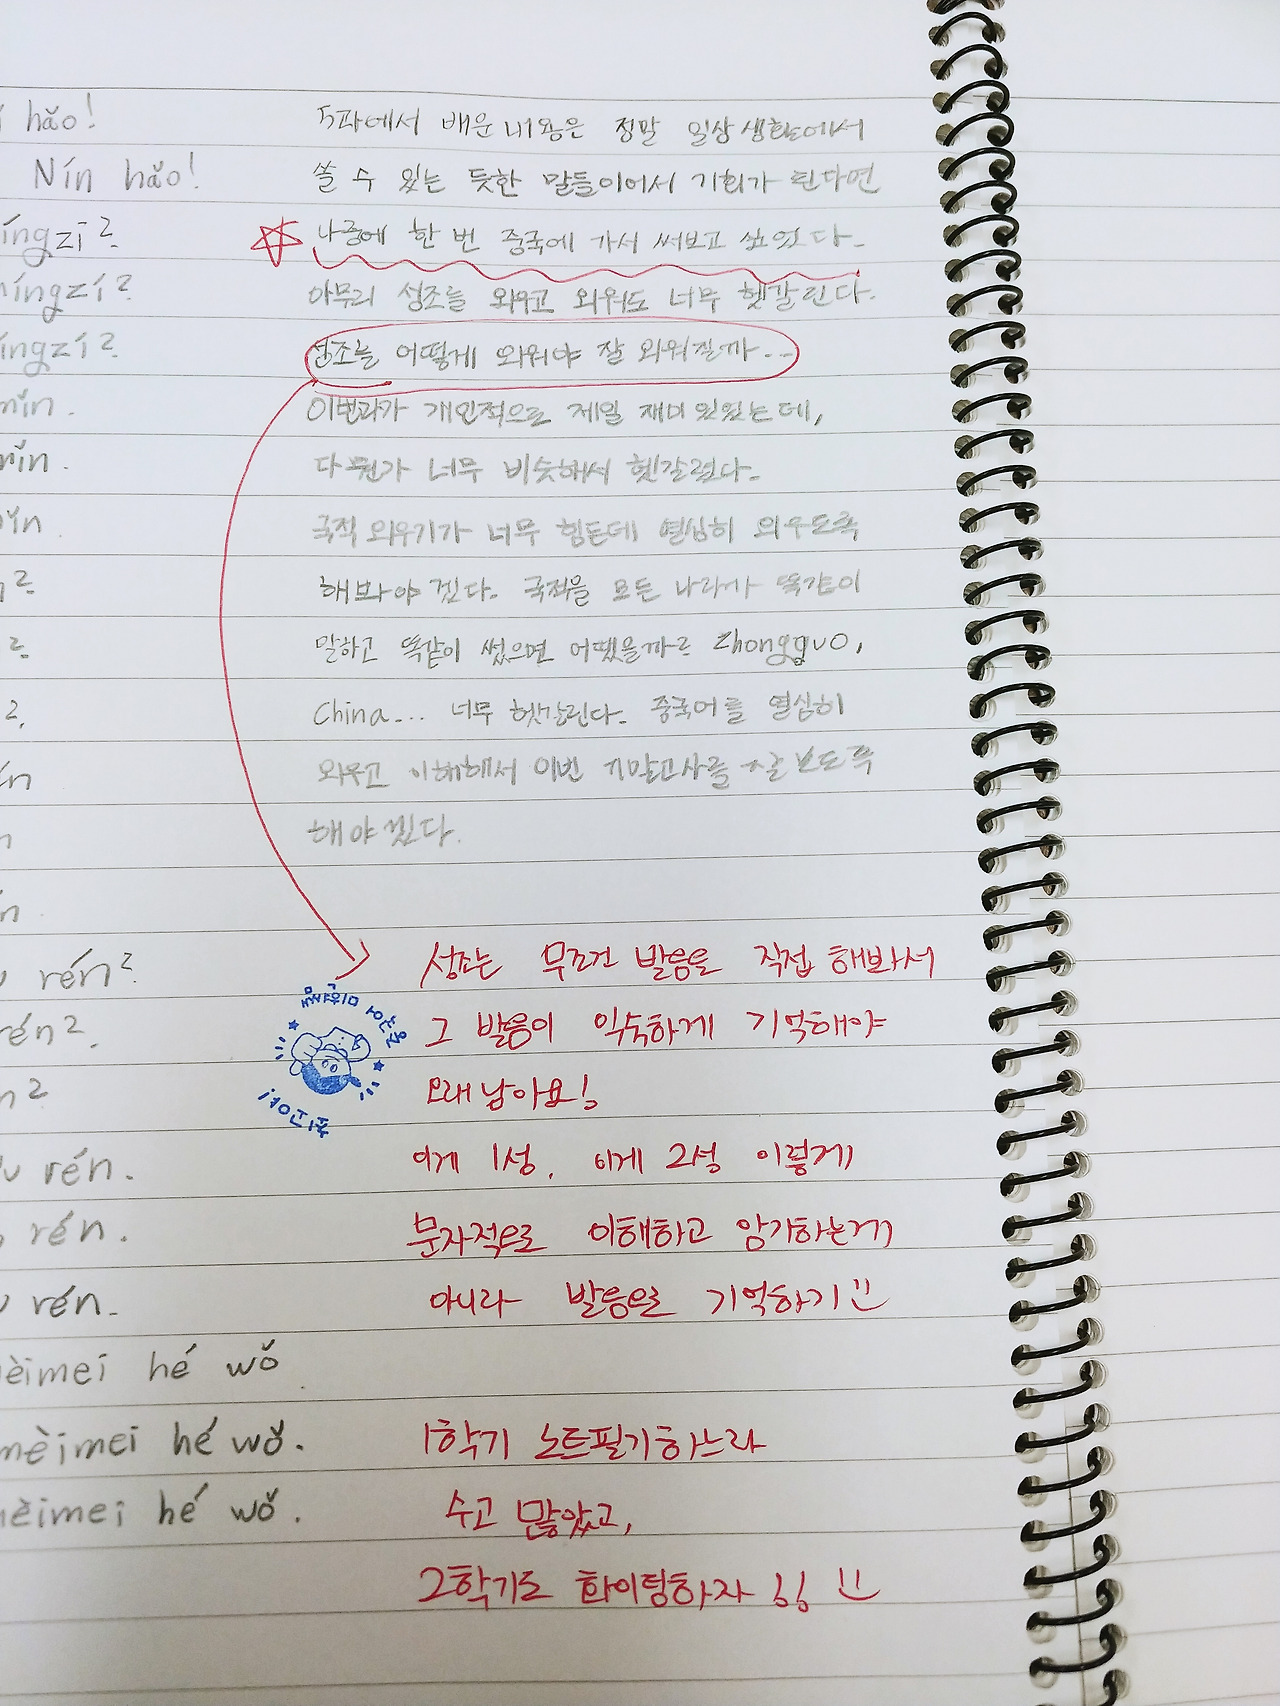 hǎo!
Nín hǎo!
íngzì?
míngzì?
íngzì?
rén?
rén?
rén.
rén.
rén.
mèimei hé wǒ
mèimei hé wǒ.
mèimei hé wǒ.
5과에서 배운 내용은 정말 일상생활에서
쓸 수 있는 듯한 말들이어서 기회가 된다면
나중에 한 번 중국에 가서 써보고 싶었다.
아무리 성조를 외우고 외워도 너무 헷갈린다.
성조를 어떻게 외워야 잘 외워질까..
이번과가 개인적으로 제일 재미있었는데,
다 뭔가 너무 비슷해서 헷갈렸다.
국적 외우기가 너무 힘든데 열심히 외우도록
해봐야겠다. 국적을 모든 나라가 똑같이
말하고 똑같이 썼으면 어땠을까? Zhongguo,
China... 너무 헷갈린다. 중국어를 열심히
외우고 이해해서 이번 기말고사를 잘 보도록
해야겠다.
성조는 무조건 발음을 직접 해봐서
그 발음이 익숙하게 기억해야
오래남아요!
이게 1성, 이게 2성 이렇게
문자적으로 이해하고 암기하는게
아니라 발음으로 기억하기
1학기 노트필기하느라
수고 많았고,
2학기도 화이팅하자!!